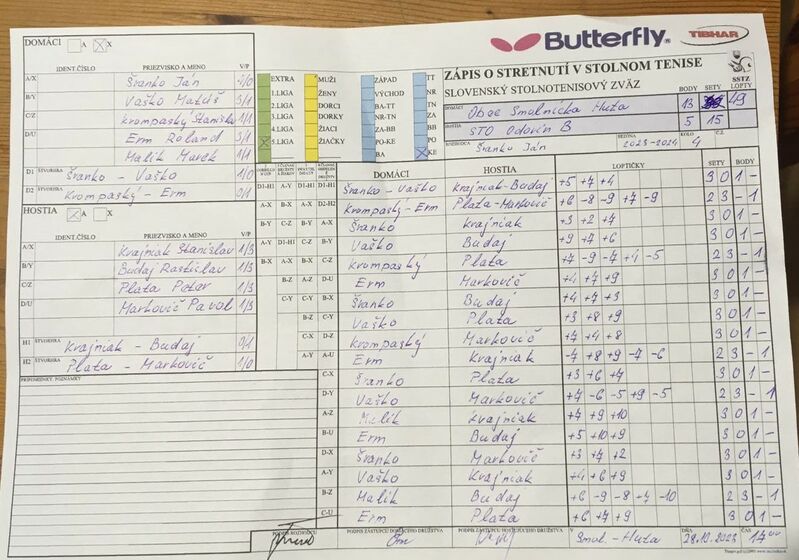 Butterfly
TIBHAR
DOMÁCI A X
IDENT.ČÍSLO PRIEZVISKO A MENO V/P
A/X Švanko Ján
B/Y Vaško Matúš 3/1
C/Z Krompaský Stanislav
D/U Erm Roland 3/1
Malik Marek 1/1
D1 ŠTVORHRA Švanko - Vaško 1/0
D2 ŠTVORHRA Krompaský - Erm 0/1
HOSTIA A X
IDENT.ČÍSLO PRIEZVISKO A MENO V/P
A/X Krajniak Stanislav 1/3
B/Y Budaj Rastislav 1/3
C/Z Plata Peter 1/3
D/U Markovič Pavol 1/3
H1 ŠTVORHRA Krajniak - Budaj 0/1
H2 ŠTVORHRA Plata - Markovič 1/0
PRIPOMIENKY, POZNÁMKY
EXTRA MUŽI ZÁPAD TT
1.LIGA ŽENY VÝCHOD NR
2.LIGA DORCI BA-TT TN
3.LIGA DORKY NR-TN ZA
4.LIGA ŽIACI ZA-BB BB
5.LIGA ŽIAČKY PO-KE PO
BA KE
ZÁPIS O STRETNUTÍ V STOLNOM TENISE
SLOVENSKÝ STOLNOTENISOVÝ ZVÄZ
SSTZ
BODY SETY LOPTY
DOMÁCI Obec Smolnícka Huta 13 49
HOSTIA STO Odorín B 5 15
ROZHODCA Švanko Ján SEZÓNA 2023-2024 KOLO 4
DOMÁCI HOSTIA LOPTIČKY SETY BODY
D1-H1 A-Y D1-H1 D1-H1 Švanko - Vaško Krajniak-Budaj +5 +7 +4 3 0 1 -
A-X B-X A-X D2-H2 Krompaský-Erm Plata-Markovič +6 -8 -9 +7 -9 2 3 - 1
B-Y C-Z B-Y A-X Švanko Krajniak +3 +2 +4 3 0 1 -
A-Y D1-H1 C-Z B-Y Vaško Budaj +9 +7 +6 3 0 1 -
B-X A-X B-X C-Z Krompaský Plata +7 -9 -7 +4 -5 2 3 - 1
B-Z A-Z D-U Erm Markovič +4 +7 +9 3 0 1 -
C-Y C-Y B-X Švanko Budaj +4 +7 +3 3 0 1 -
B-Z C-Y Vaško Plata +3 +8 +9 3 0 1 -
C-X D-Z Krompaský Markovič +7 +4 +8 3 0 1 -
A-Y A-U Erm Krajniak -7 +8 +9 -7 -6 2 3 - 1
C-X Švanko Plata +3 +6 +7 3 0 1 -
D-Y Vaško Markovič +7 -6 -5 +9 -5 2 3 - 1
A-Z Malik Krajniak +7 +9 +10 3 0 1 -
B-U Erm Budaj +5 +10 +9 3 0 1 -
D-X Švanko Markovič +3 +7 +2 3 0 1 -
A-Y Vaško Krajniak +4 +6 +9 3 0 1 -
B-Z Malik Budaj +6 -9 -8 +7 -10 2 3 - 1
C-U Erm Plata +6 +7 +9 3 0 1 -
PODPIS ROZHODCU PODPIS ZÁSTUPCU DOMÁCEHO DRUŽSTVA PODPIS ZÁSTUPCU HOSŤUJÚCEHO DRUŽSTVA V Smol.-Huta DŇA 28.10.2023 17 00